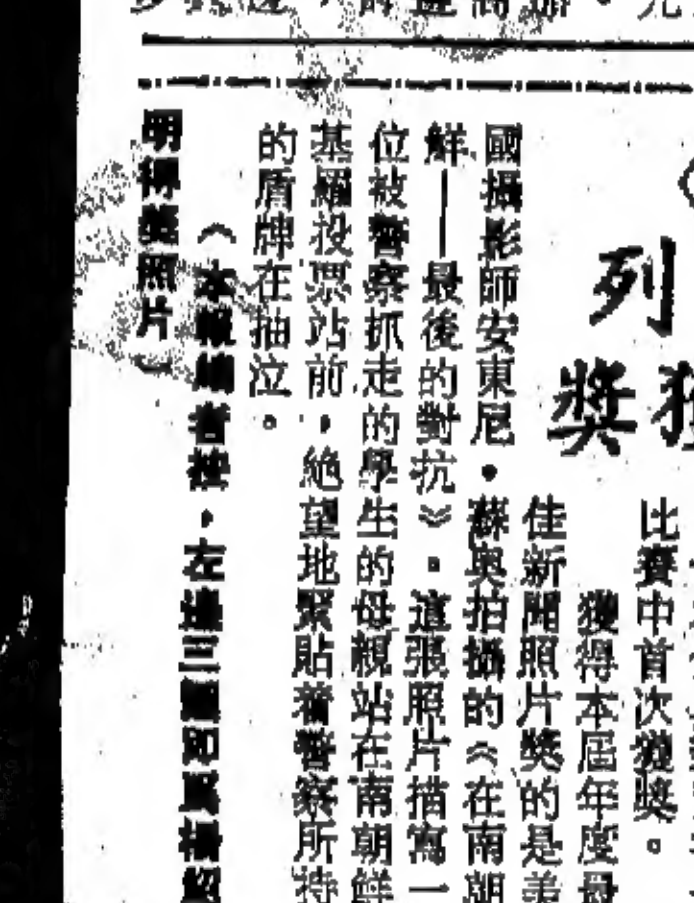 列
獎
比賽中首次獲獎。
獲得本屆年度最
佳新聞照片獎的是美
國攝影師安東尼・蘇奧拍攝的《在南朝
鮮——最後的對抗》。這張照片描寫一
位被警察抓走的學生的母親站在南朝鮮
基羅投票站前，絕望地緊貼着警察所持
的盾牌在抽泣。
（本報編者按，左邊三圖即
明得獎照片）